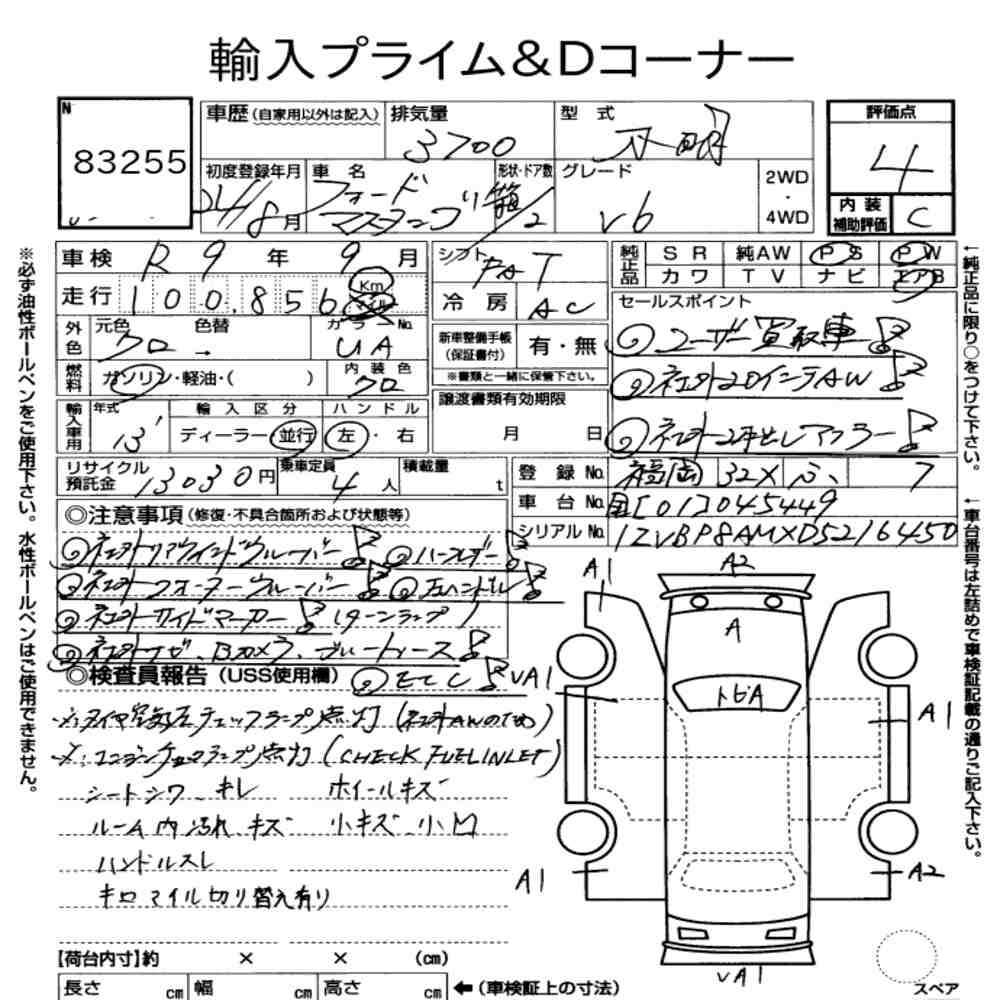 輸入プライム&Dコーナー
N
83255
車歴 (自家用以外は記入)
排気量
3700
型式
不明
評価点
4
初度登録年月
24/8月
車名
フォード
マスタング
形状・ドア数
箱/2
グレード
V6
2WD
・
4WD
内装
補助評価
C
車検 R9年9月
シフト
FAT
純正品
SR 純AW PS PW
カワ TV ナビ エアB
走行 100,856 Km マイル
冷房 AC
セールスポイント
ユーザー買取車
社外20インチAW
社外2本出しマフラー
外色
元色 色替
クロ →
カラーNo.
UA
新車整備手帳
(保証書付)
有・無
※書類と一緒に保管下さい。
燃料
ガソリン・軽油・( )
内装色
クロ
譲渡書類有効期限
月 日
輸入車用
年式
13'
輸入区分
ディーラー・並行
ハンドル
左・右
リサイクル
預託金
13030円
乗車定員
4人
積載量
t
登録No. 福岡 32X ふ 7
車台No. 国[01]045449
シリアルNo. 1ZVBP8AMXD5216450
◎注意事項 (修復・不具合箇所および状態等)
社外リアウインドウルーバー
社外クォータールーバー
左ハンドル
社外サイドマーカー (ターンランプ)
社外ナビ、Bカメラ、ブルートゥース
◎検査員報告 (USS使用欄)
ETC
※タイヤ空気圧チェックランプ点灯 (社外AWのため)
※エンジンチェックランプ点灯 (CHECK FUEL INLET)
シートシワ、キレ ホイールキズ
ルーム内汚れ、キズ 小キズ、小凹
ハンドルスレ
キロマイル切り替え有り
A1
A2
A
トビA
VA1
A1
A1
A2
VA1
スペア
【荷台内寸】約 × × (cm)
長さ cm 幅 cm 高さ cm ←(車検証上の寸法)
※必ず油性ボールペンをご使用下さい。水性ボールペンはご使用できません。
←純正品に限り○をつけて下さい。
←車台番号は左詰めで車検証記載の通りご記入下さい。